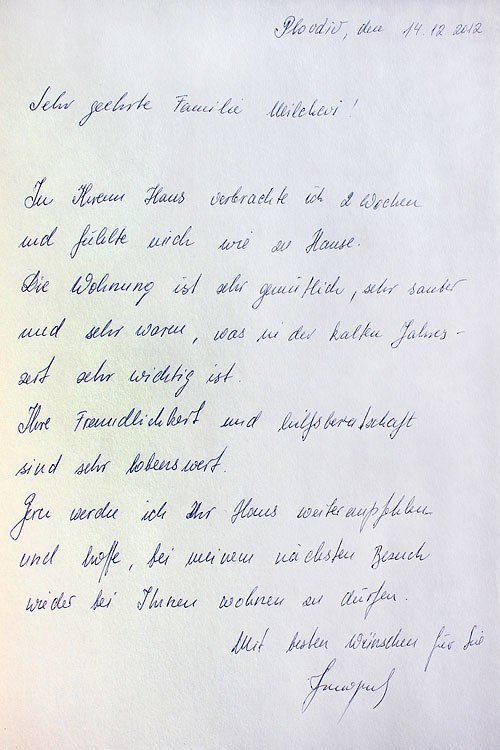 Plovdiv, den 14.12.2012
Sehr geehrte Familie Milchevi!
In Ihrem Haus verbrachte ich 2 Wochen
und fühlte mich wie zu Hause.
Die Wohnung ist sehr gemütlich, sehr sauber
und sehr waren, was in der kalten Jahres-
zeit sehr wichtig ist.
Ihre Freundlichkeit und hilfsberatschaft
sind sehr lobenswert.
Gern werde ich Ihr Haus weiterempfehlen
und hoffe, bei meinem nächsten Besuch
wieder bei Ihnen wohnen zu dürfen.
Mit besten Wünschen für Sie